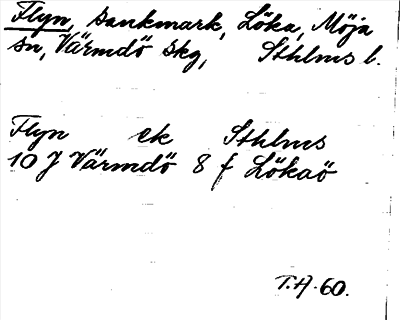 Flyn, sankmark, Löka, Möja
sn, Värmdö skg, Sthlms l.
Flyn ek Sthlms
10 J Värmdö 8 f Lökaö
T.H. 60.